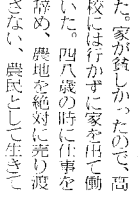 た。家が貧しかったので、高
校には行かずに家を出て働
いた。四八歳の時に仕事を
辞め、農地を絶対に売り渡
さない、農民として生きて